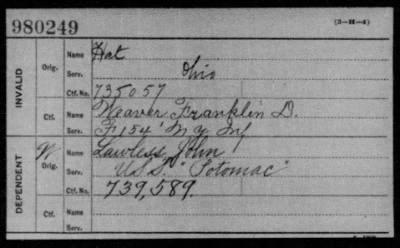 980249 (3-H-4)
INVALID
Orig. Name Hat
Serv. Ohio
Ctf. No. 735057
Ctf. Name Weaver Franklin D.
Serv. F 154" N Y Inf
DEPENDENT
W Orig. Name Lawless, John
Serv. U.S.S. "Potomac"
Ctf. No. 739,589.
Ctf. Name
Serv.